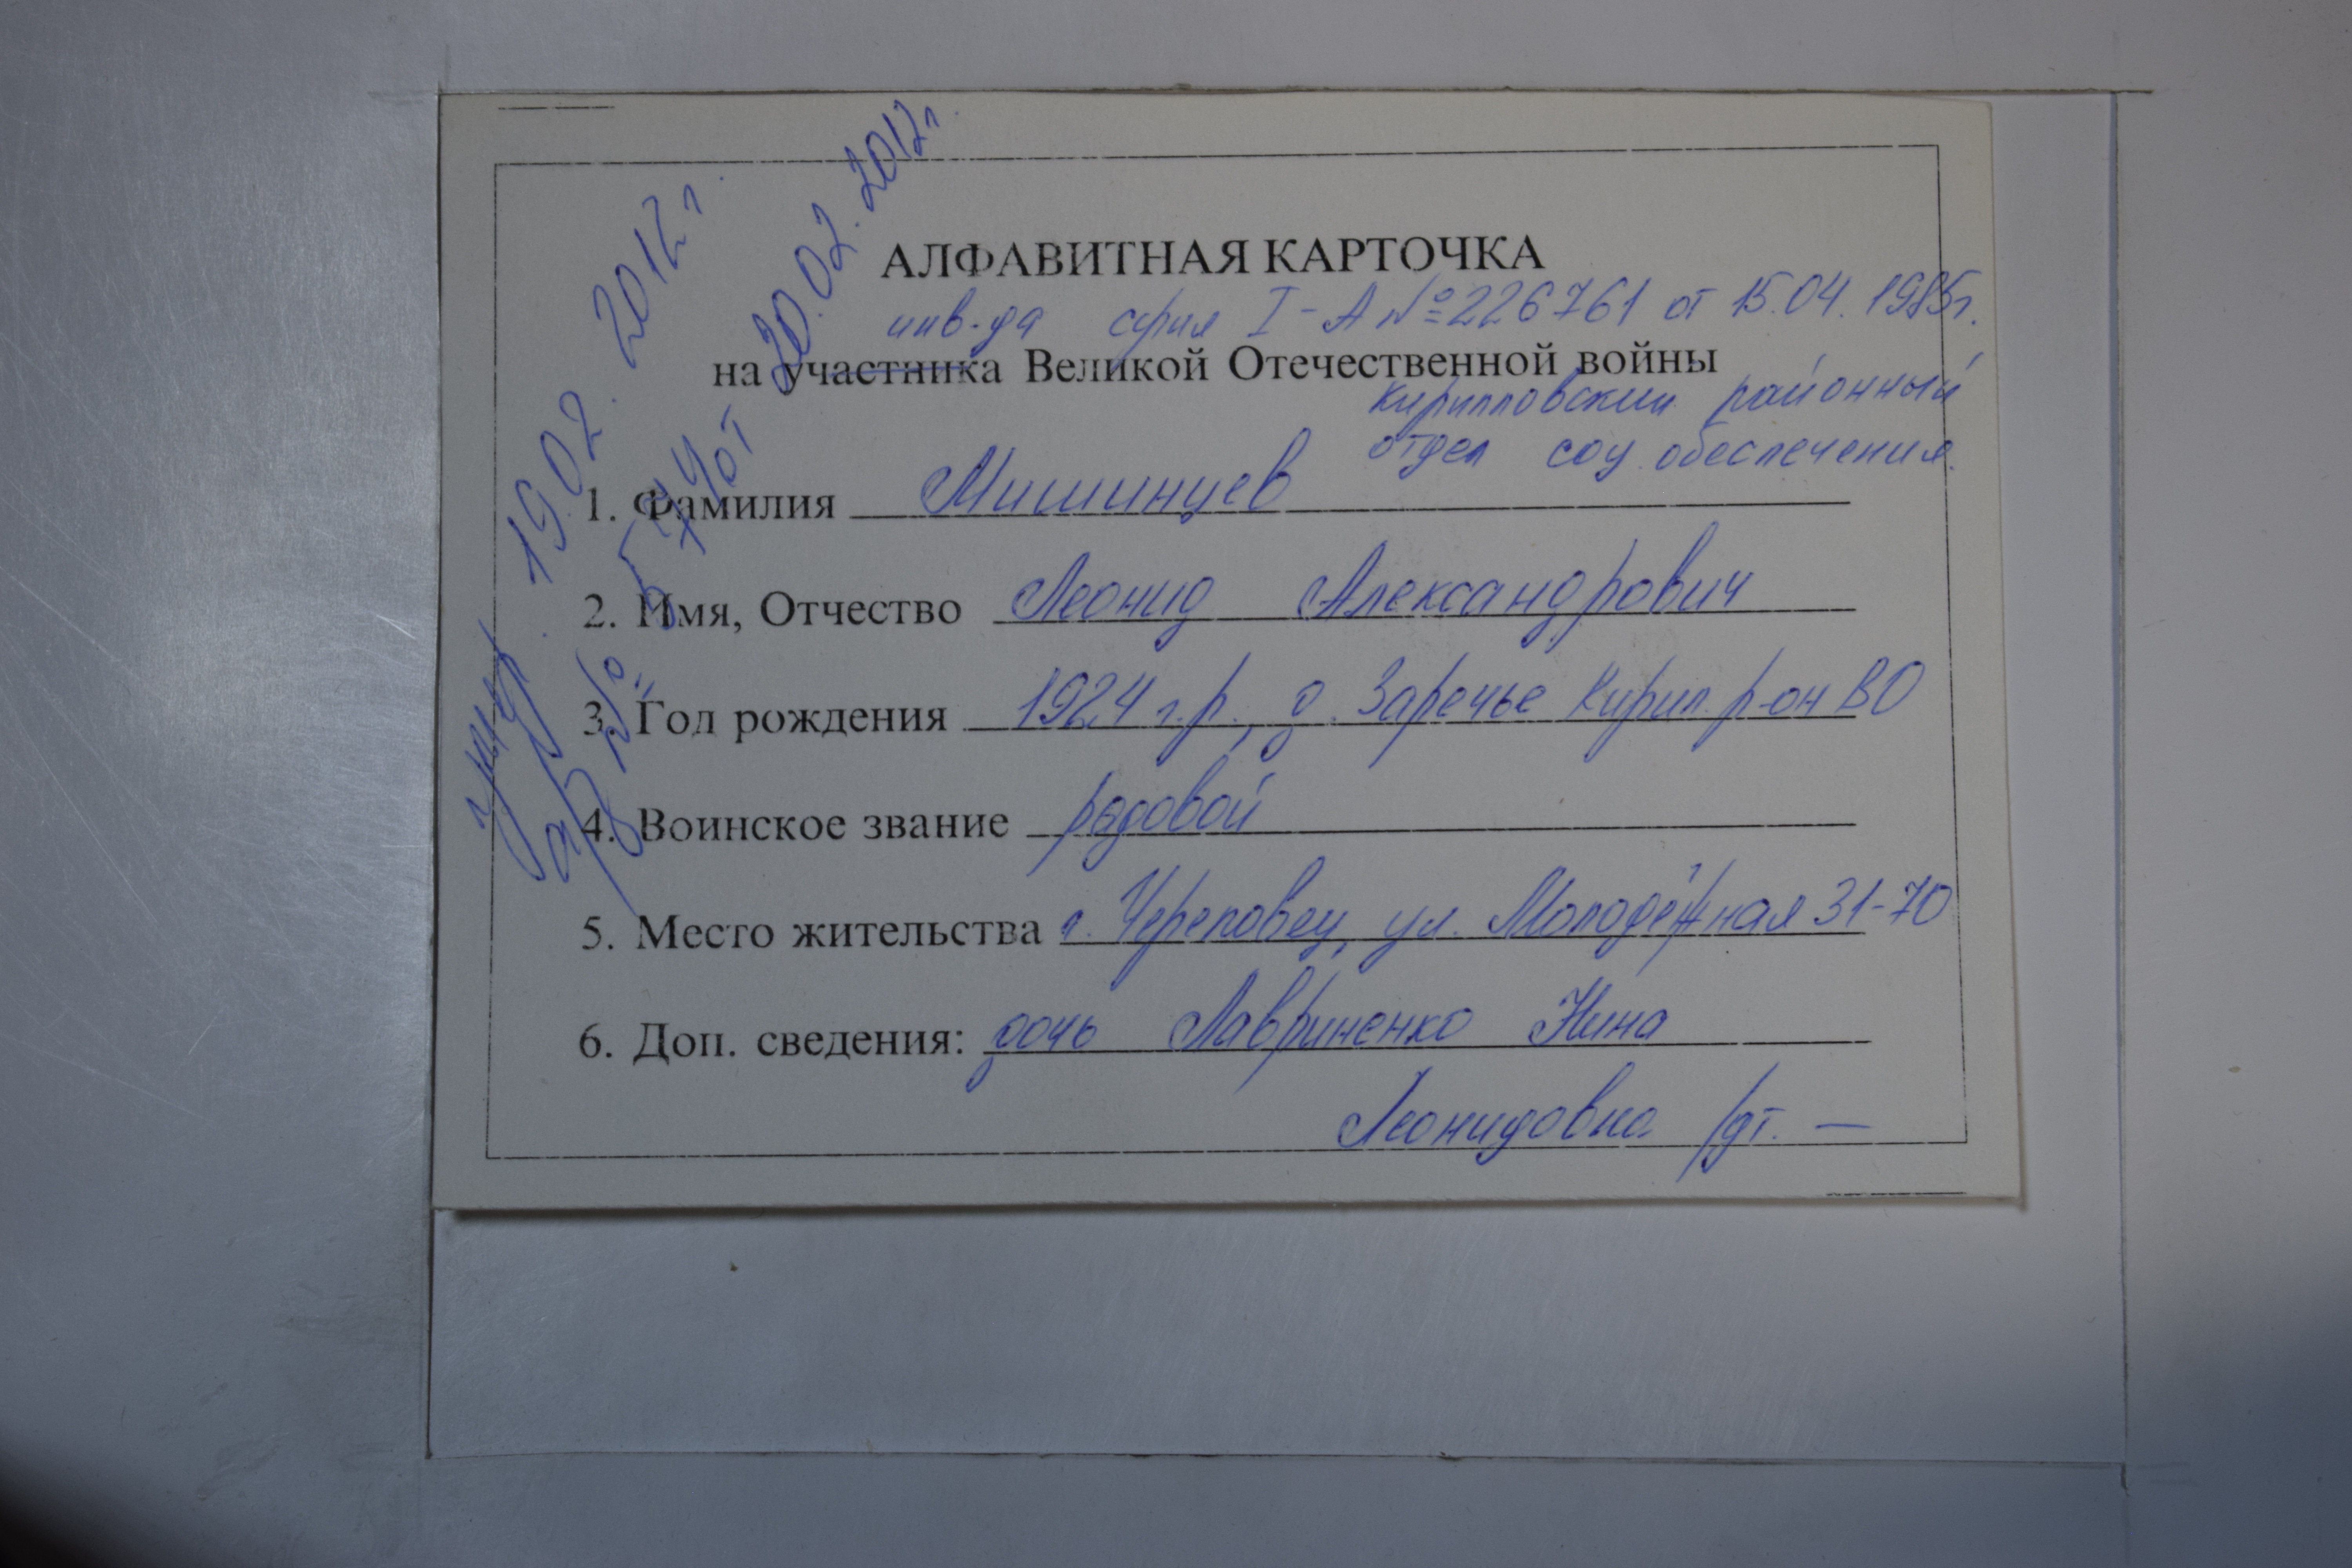 АЛФАВИТНАЯ КАРТОЧКА
инв-да серия I-А №226761 от 15.04.1985г.
на участника Великой Отечественной войны
Кирилловский районный
отдел соц. обеспечения.
1. Фамилия Мишинцев
2. Имя, Отчество Леонид Александрович
3. Год рождения 1924 г.р., д. Заречье Кирил. р-он ВО
4. Воинское звание рядовой
5. Место жительства г. Череповец, ул. Молодёжная 31-70
6. Доп. сведения: дочь Лавриненко Нина
Леонидовна р/дт. —
умер 19.02.2012г.
№ 574 от 20.02.2012г.